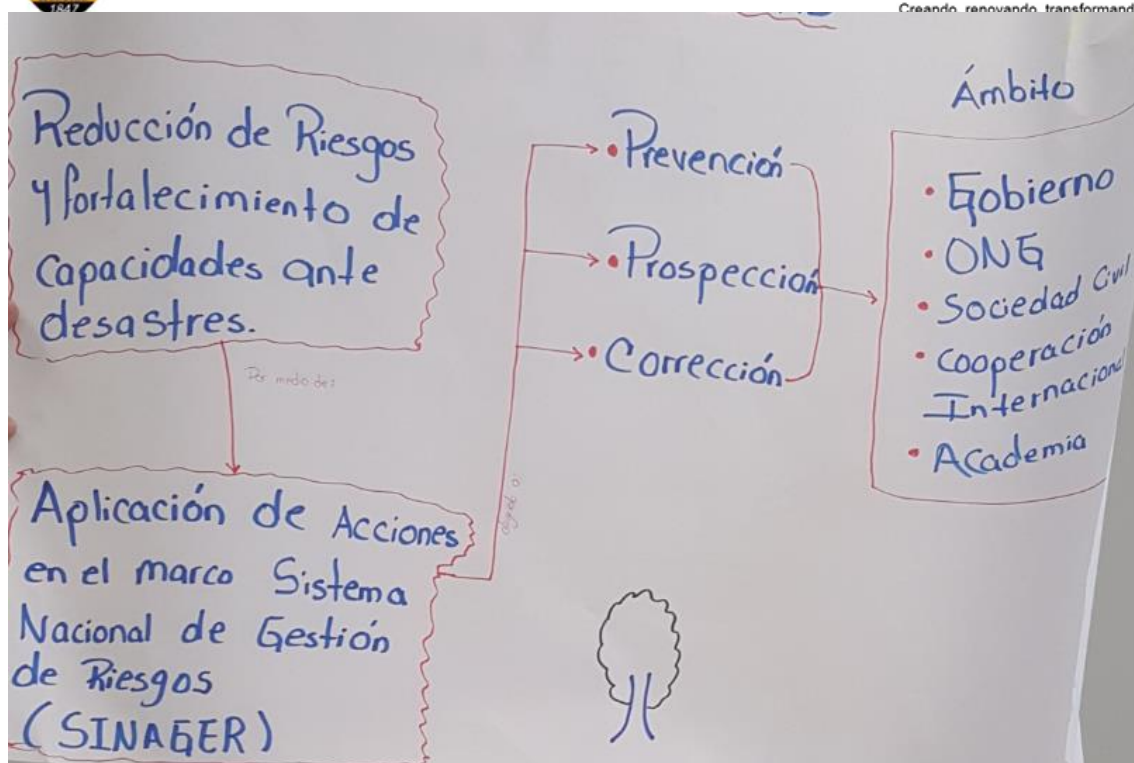 1847
Creando, renovando, transformand
Reducción de Riesgos
y fortalecimiento de
capacidades ante
desastres.
Por medio de:
Aplicación de Acciones
en el marco Sistema
Nacional de Gestión
de Riesgos
(SINAGER)
• Prevención
• Prospección
• Corrección
Ámbito
• Gobierno
• ONG
• Sociedad Civil
• Cooperación
Internacional
• Academia